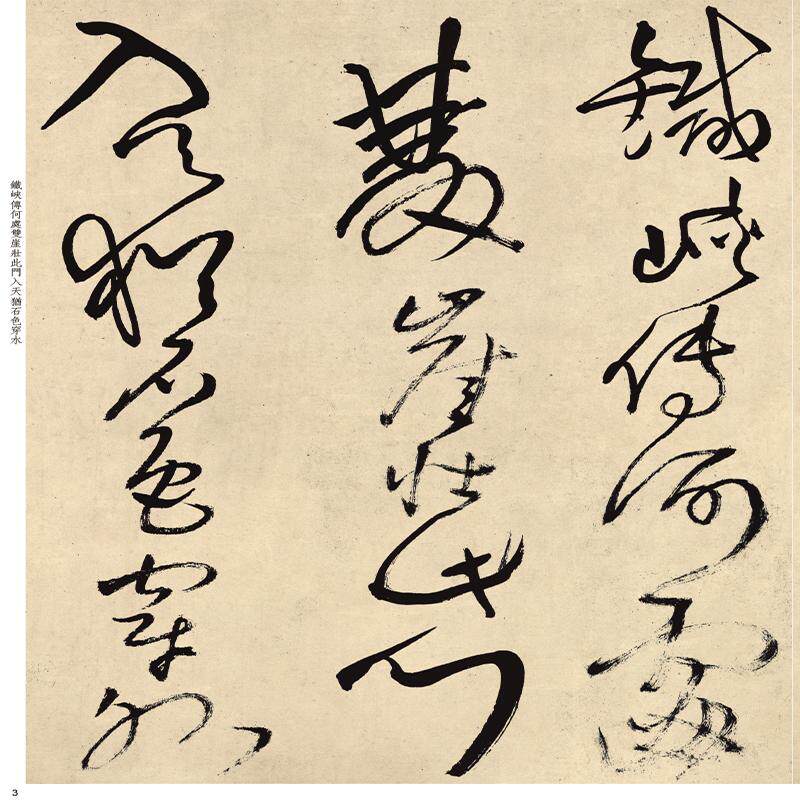 鐵峽傳何處
雙崖壯此門
入天猶石色穿水
鐵峽傳何處雙崖壯此門入天猶石色穿水
3